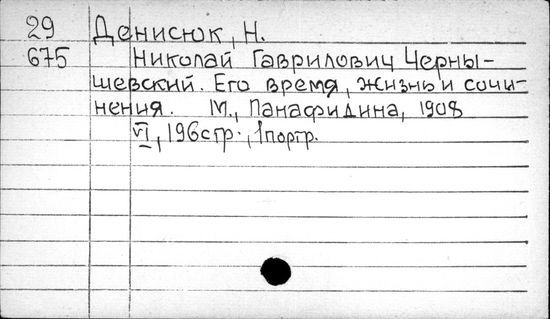 29 Денисюк, Н.
675 Николай Гаврилович Черны-
шевский. Его время, жизнь и сочи-
нения. М., Панафидина, 1908
VI, 196стр., 1портр.